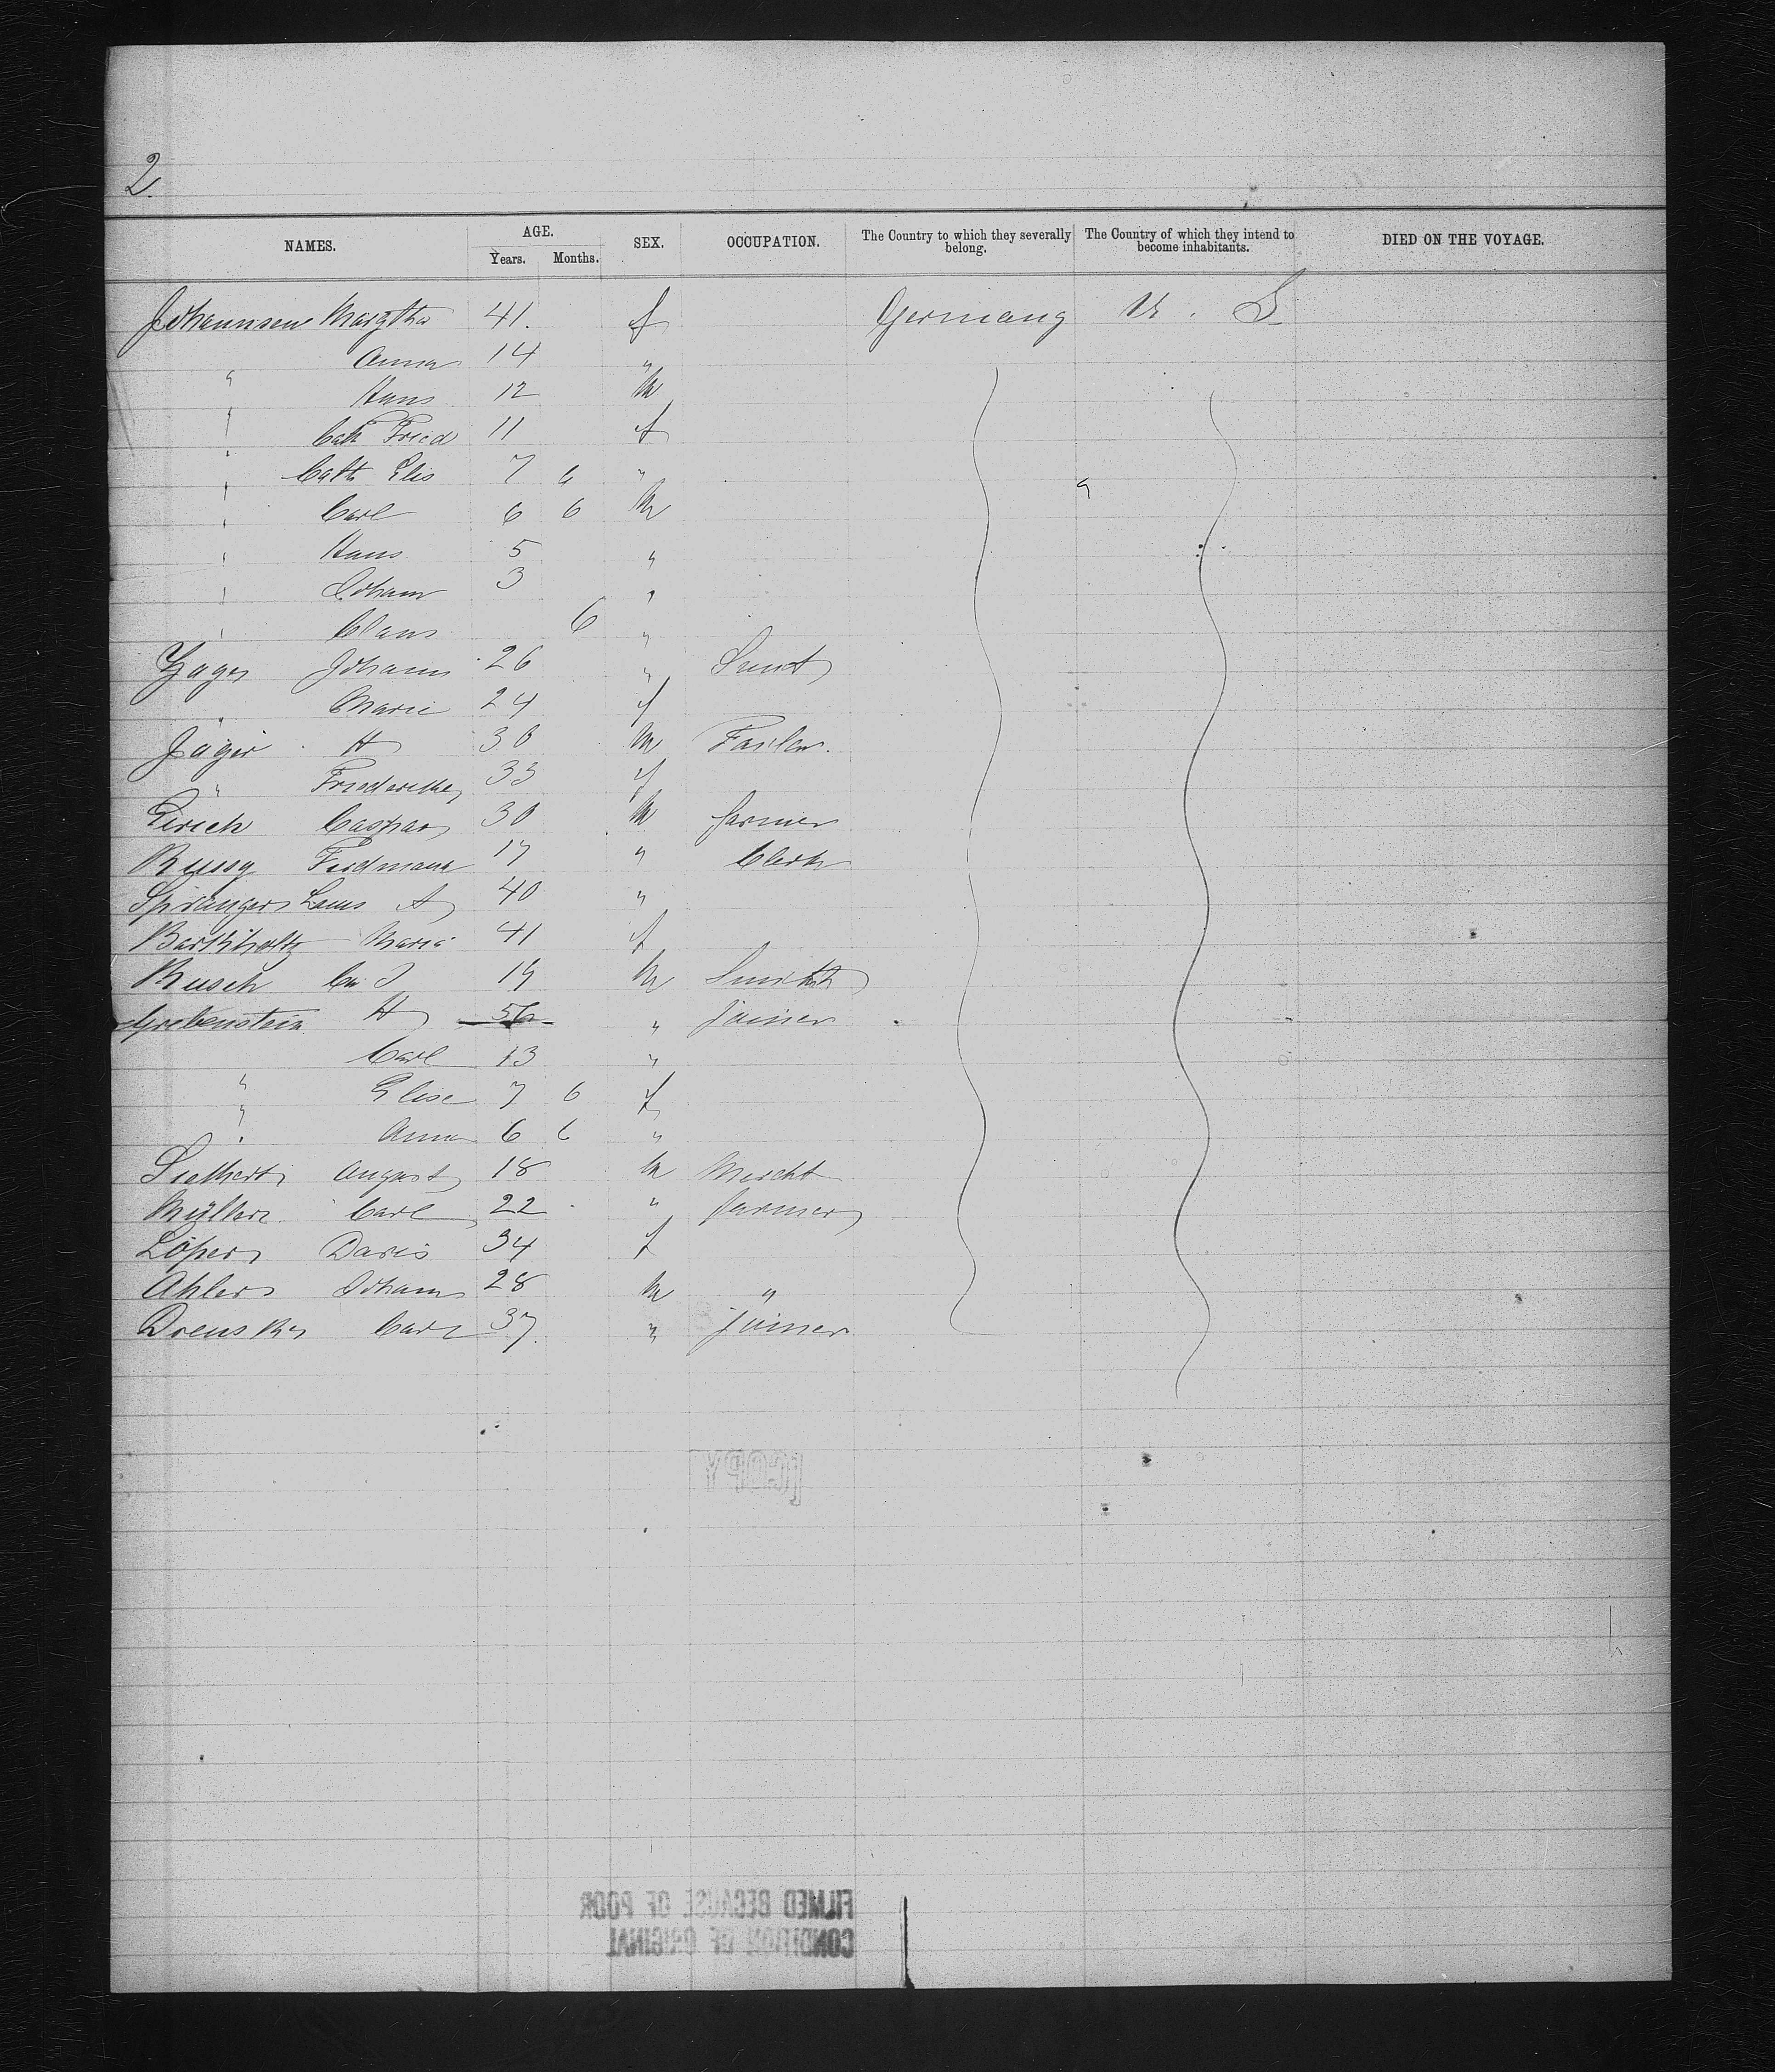 2
NAMES. AGE. SEX. OCCUPATION. The Country to which they severally belong. The Country of which they intend to become inhabitants. DIED ON THE VOYAGE.
Years. Months.
Johannsen Margtha 41. f Germany U. S.
" Anna 14 "
" Hans 12 m
" Cath Fried 11 f
" Cath Elis 7 6 "
" Carl 6 6 m
" Hans 5 "
" Johann 3 "
" Claus 6 "
Johann 26 "
" Marie 24 f
Jäger H 30 m
" 33 f
Caspar 30 m farmer
17 " Clerk
40 "
Maria 41 f
Rusch 19 m Smith
Grebenstein H 56 " Joiner
Carl 13 "
" Elise 7 6 f
" Anna 6 6 "
August 18 m Mercht
Müller Carl 22 " farmer
Löper Doris 34 f
Ahlers Johann 28 m "
Carl 37. " Joiner
COPY
FILMED BECAUSE OF POOR
CONDITION OF ORIGINAL